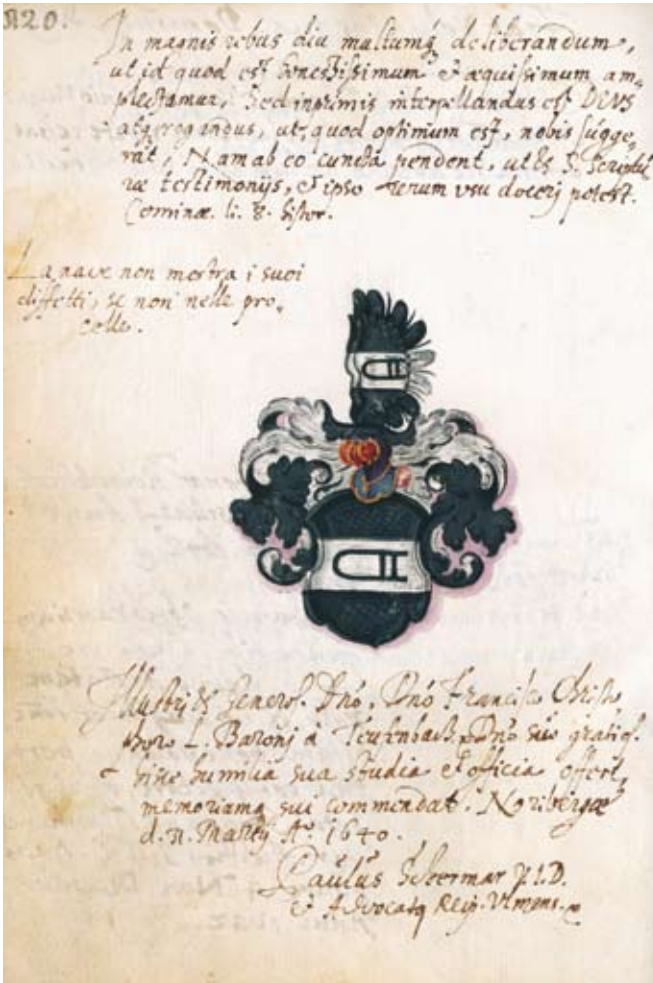 120.
In magnis rebus diu multumq deliberandum,
ut id quod est honestissimum & æquissimum am-
plectamur, Sed inprimis interpellandus est DEVS
atq rogandus, ut, quod optimum est, nobis sugge-
rat, Nam ab eo cuncta pendent, ut & S. Scriptu
ræ testimonijs, & ipso rerum usu docerj potest.
Cominæ. li. 8. histor.
La nave non mostra i suoi
diffetti, se non nelle pro-
celle.
Illustrj & Generos. Dnō. Dnō Francisco Christo
phoro L. Baronj à Teufenbach, Dnō suo gratios.
hisce humilia sua studia & officia offert,
memoriamq sui commendat. Noribergæ
d. Martij Aº. 1640.
Paulus Schermar
& Advocatq Reip. Ulmens.